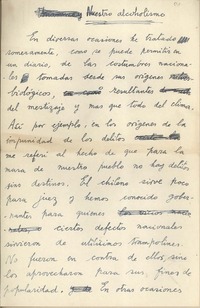 Nuestro alcoholismo
En diversas ocasiones he tratado
someramente, como se puede permitir en
un diario, de las costumbres naciona-
les tomadas desde sus orígenes
biológicos, resultantes
del mestizaje y mas que todo del clima.
Así por ejemplo, en los orígenes de la
impunidad de los delitos
me referí al hecho de que para la
masa de nuestro pueblo no hay delitos
sino destinos. El chileno sirve poco
para juez y hemos conocido gober-
nantes para quienes
ciertos defectos nacionales
sirvieron de utilísimos trampolines.
No fueron en contra de ellos, sino
los aprovecharon para sus fines de
popularidad. En otras ocasiones